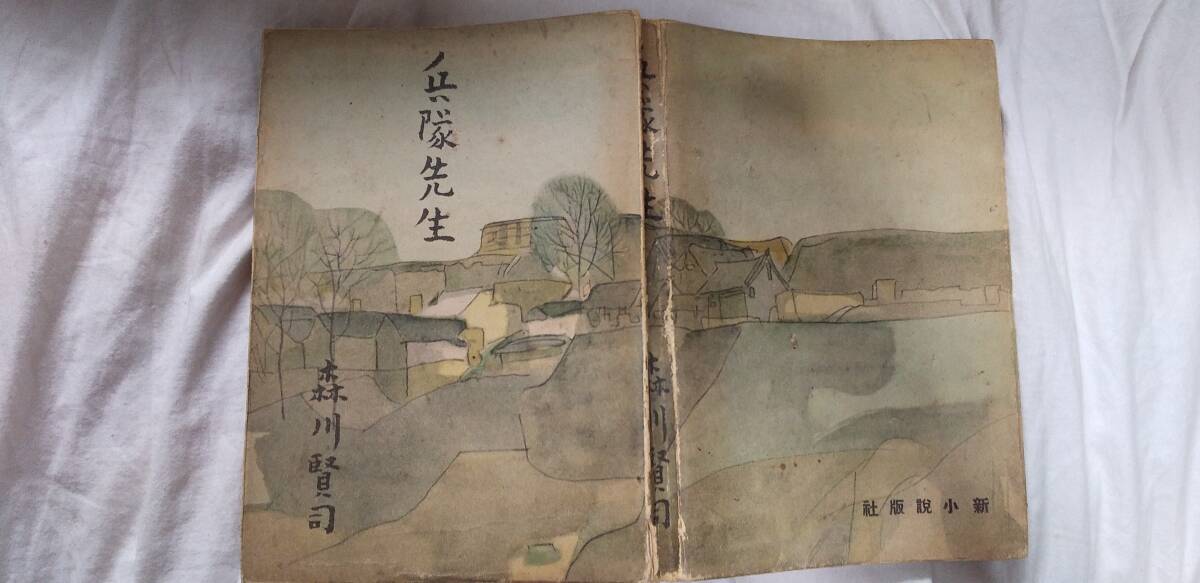 兵隊先生
森川賢司
兵隊先生
森川賢司
新小說版社